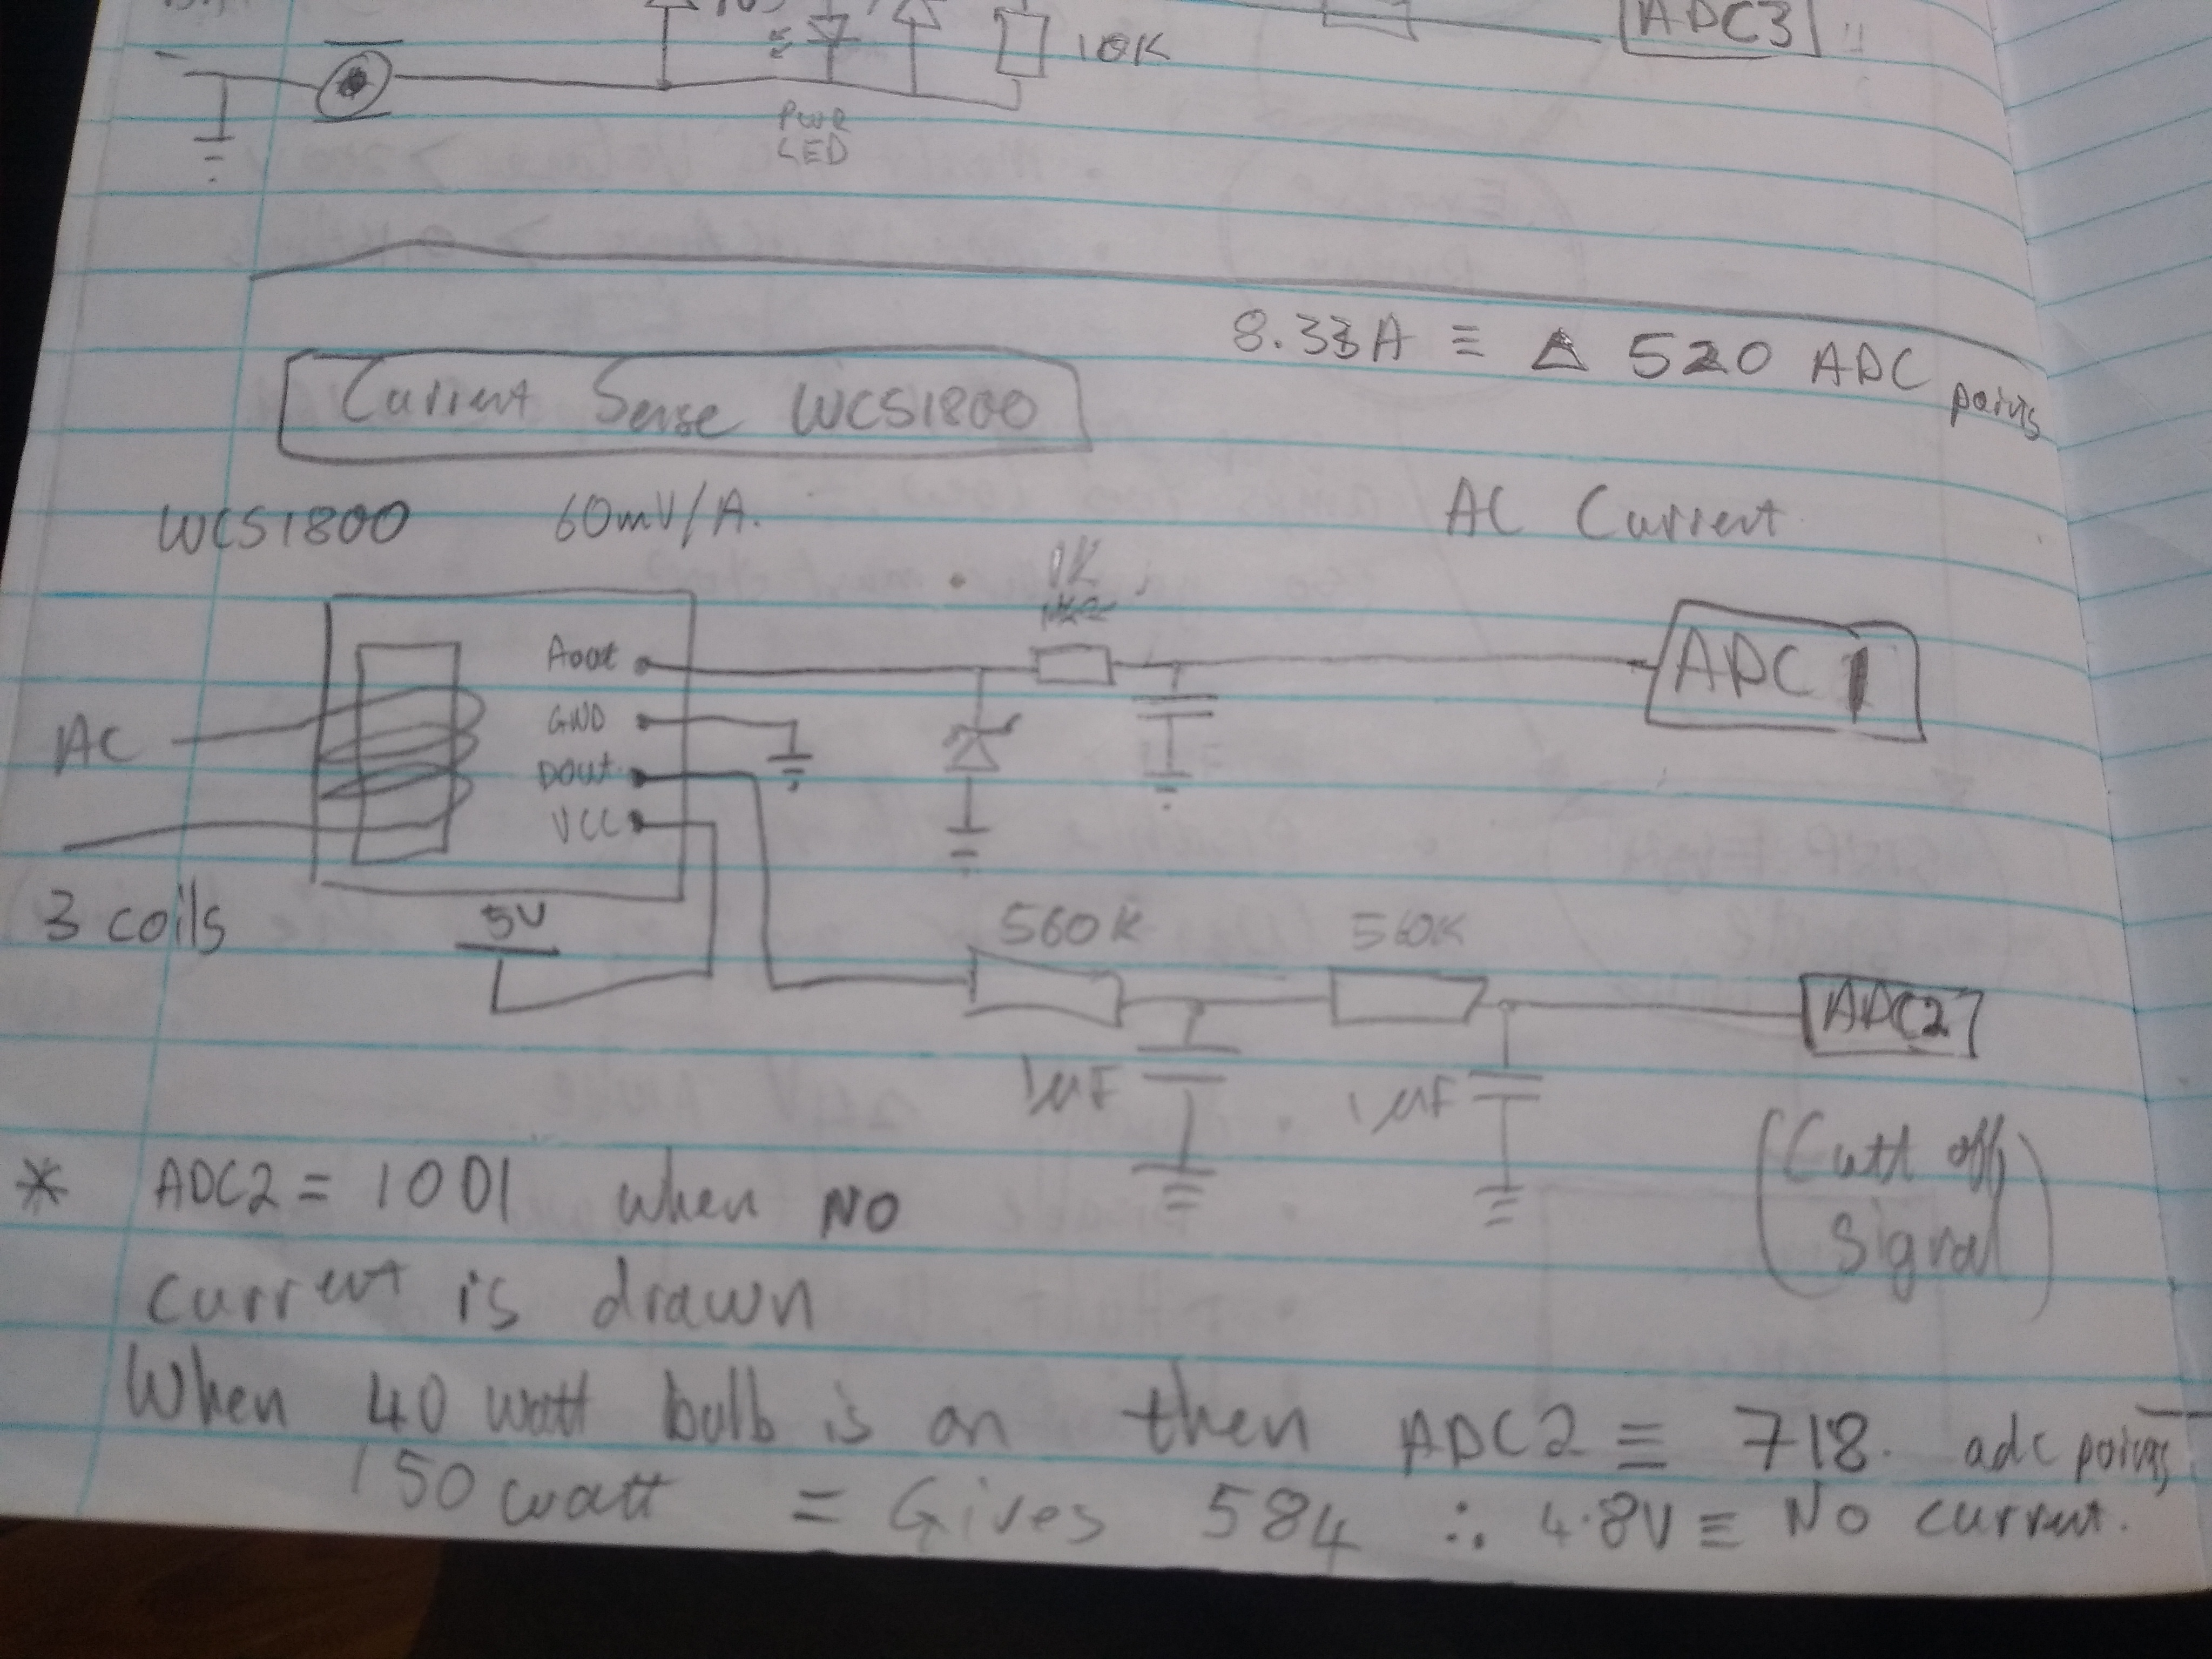 ADC3
10K
PWR
LED
8.33A ≡ Δ 520 ADC points
Current Sense WCS1800
WCS1800 60mV/A. AC Current
1K
Aout
ADC 1
GND
AC
Dout
VCC
3 coils
5V
560K 560K
ADC2
1µF 1µF
(Cutt off
Signal)
* ADC2 = 1001 when NO
current is drawn
When 40 watt bulb is on then ADC2 ≡ 718. adc points
150 watt = Gives 584 ∴ 4.8V ≡ No current.